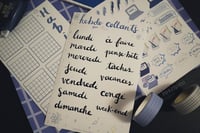 hebdo collants
lundi à faire
mardi pense-bête
mercredi tâches
jeudi vacances
vendredi congé
samedi
dimanche weekend